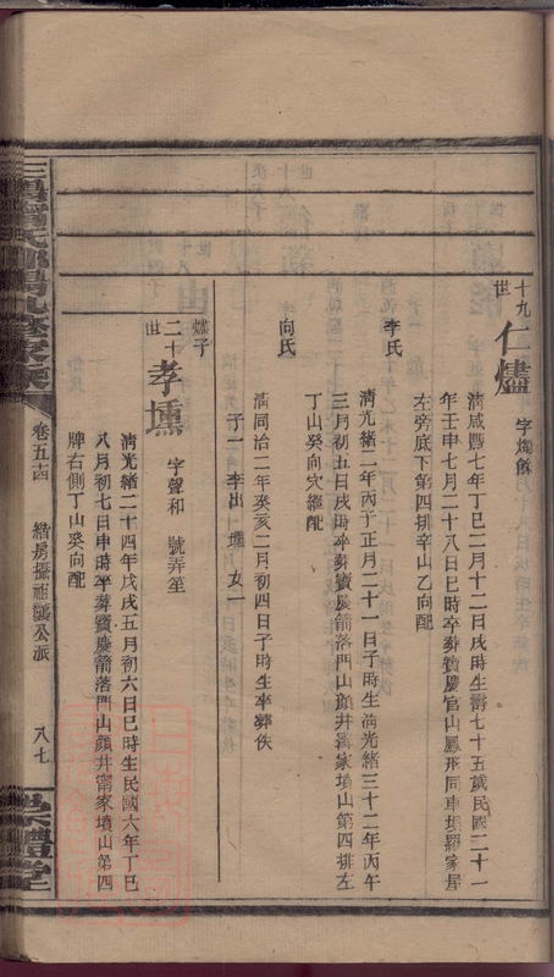 十九世
仁燼
字燭餘
清咸豐七年丁巳二月十二日戌時生壽七十五歲民國二十一
年壬申七月二十八日巳時卒葬寶慶官山鳳形同車垻羅家屋
左旁底下第四排辛山乙向配
李氏
清光緒二年丙子正月二十一日子時生清光緒三十二年丙午
三月初五日戌時卒葬寶慶箭落門山顏井甯家墳山第四排左
丁山癸向穴繼配
向氏
清同治二年癸亥二月初四日子時生卒葬佚
子一 李出 壎 女一
燼子
二十世
孝壎
字聲和 號弄笙
清光緒二十四年戊戌五月初六日巳時生民國六年丁巳
八月初七日申時卒葬寶慶箭落門山顏井甯家墳山第四
牌右側丁山癸向配
卷五
公派
八七